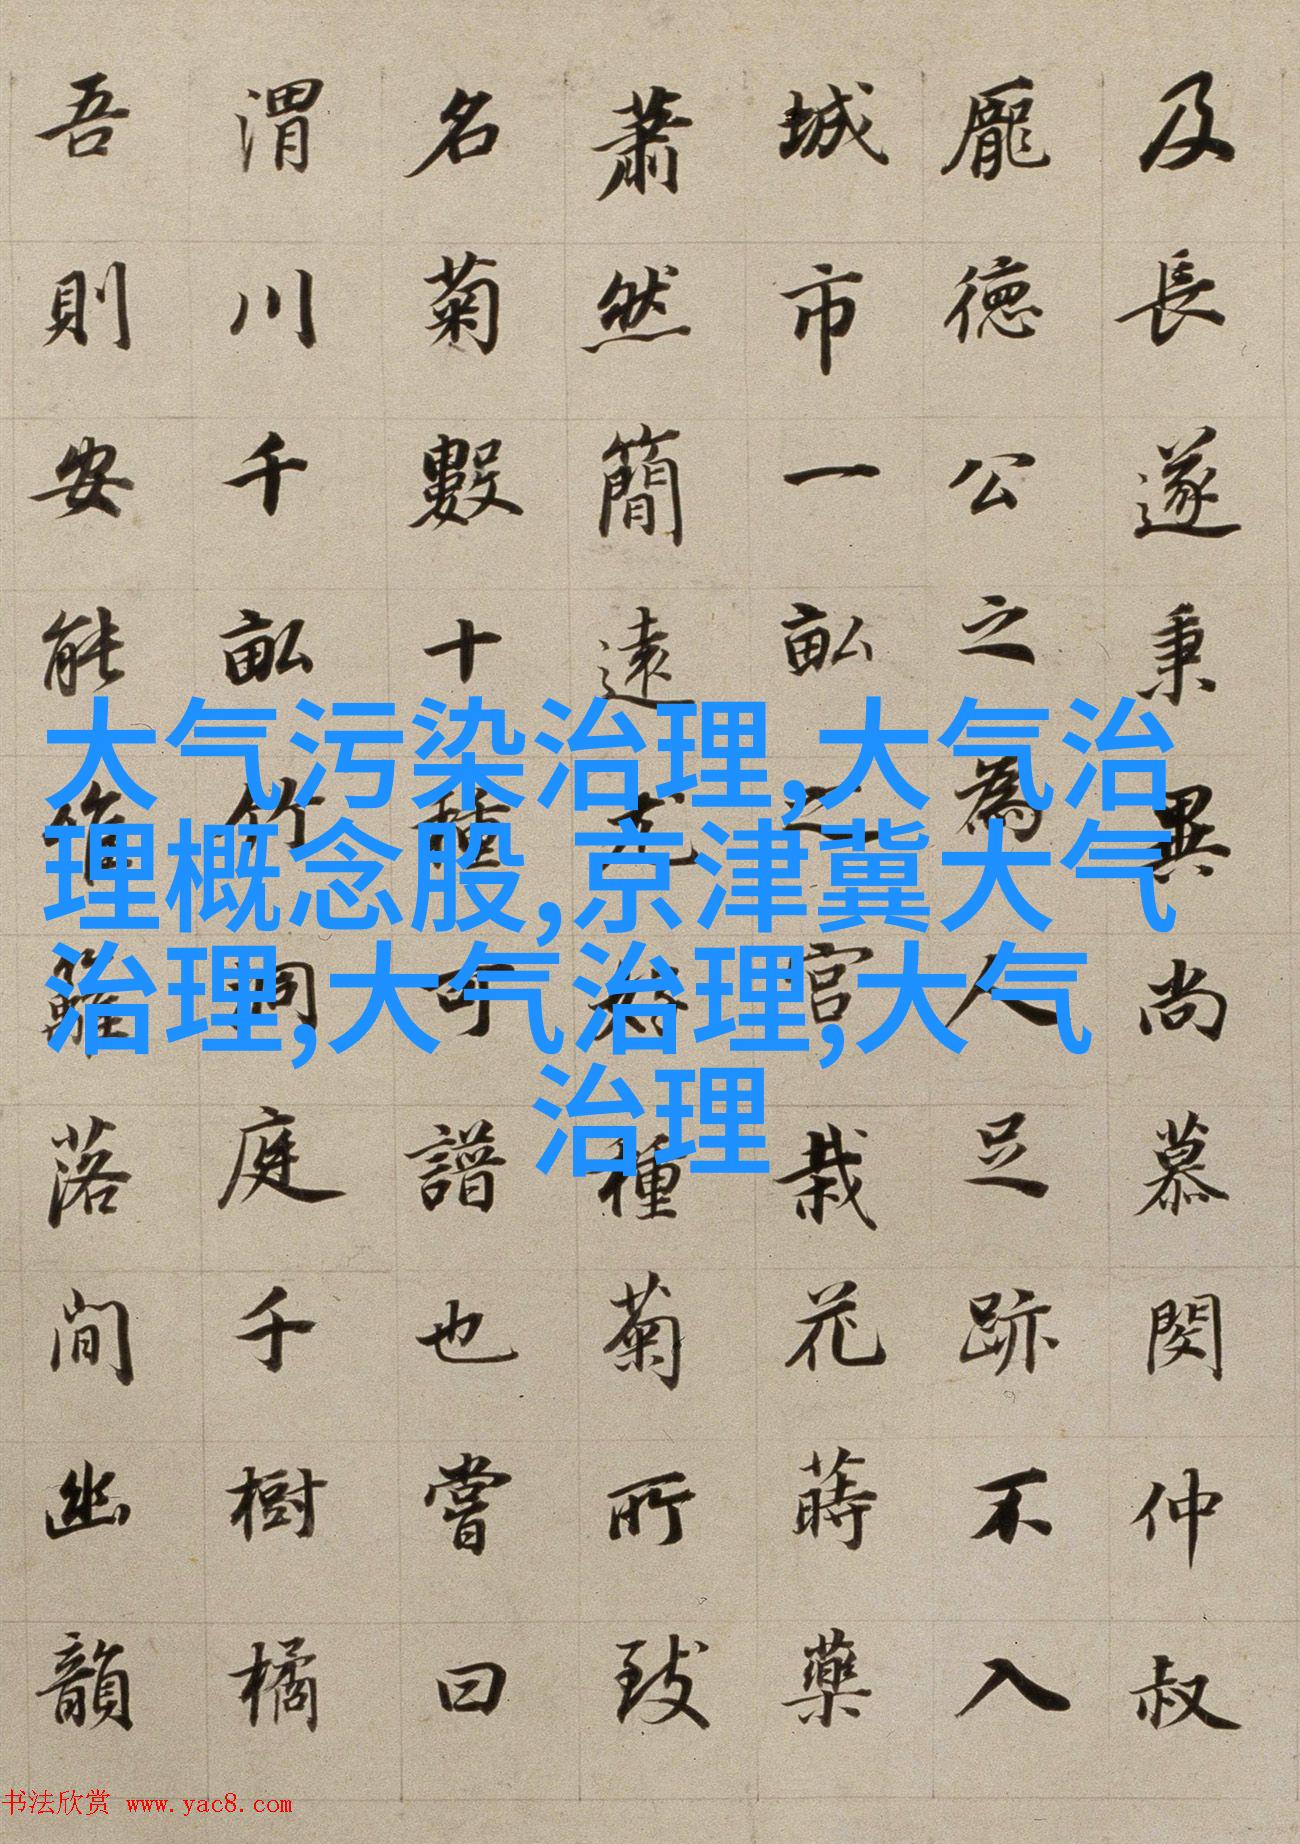 及長遂秉異尚慕閔仲叔
龐德公之為人足跡不入
城市一畝之宮栽花蒔藥
蕭然簡遠尤好種菊所致
名菊數十種可譜也嘗曰
渭川千畝竹洞庭千樹橘
吾則安能惟籬落間幽韻
大气污染治理,大气治
理概念股,京津冀大气
治理,大气治理,大气
治理
书法欣赏 www.yac8.com